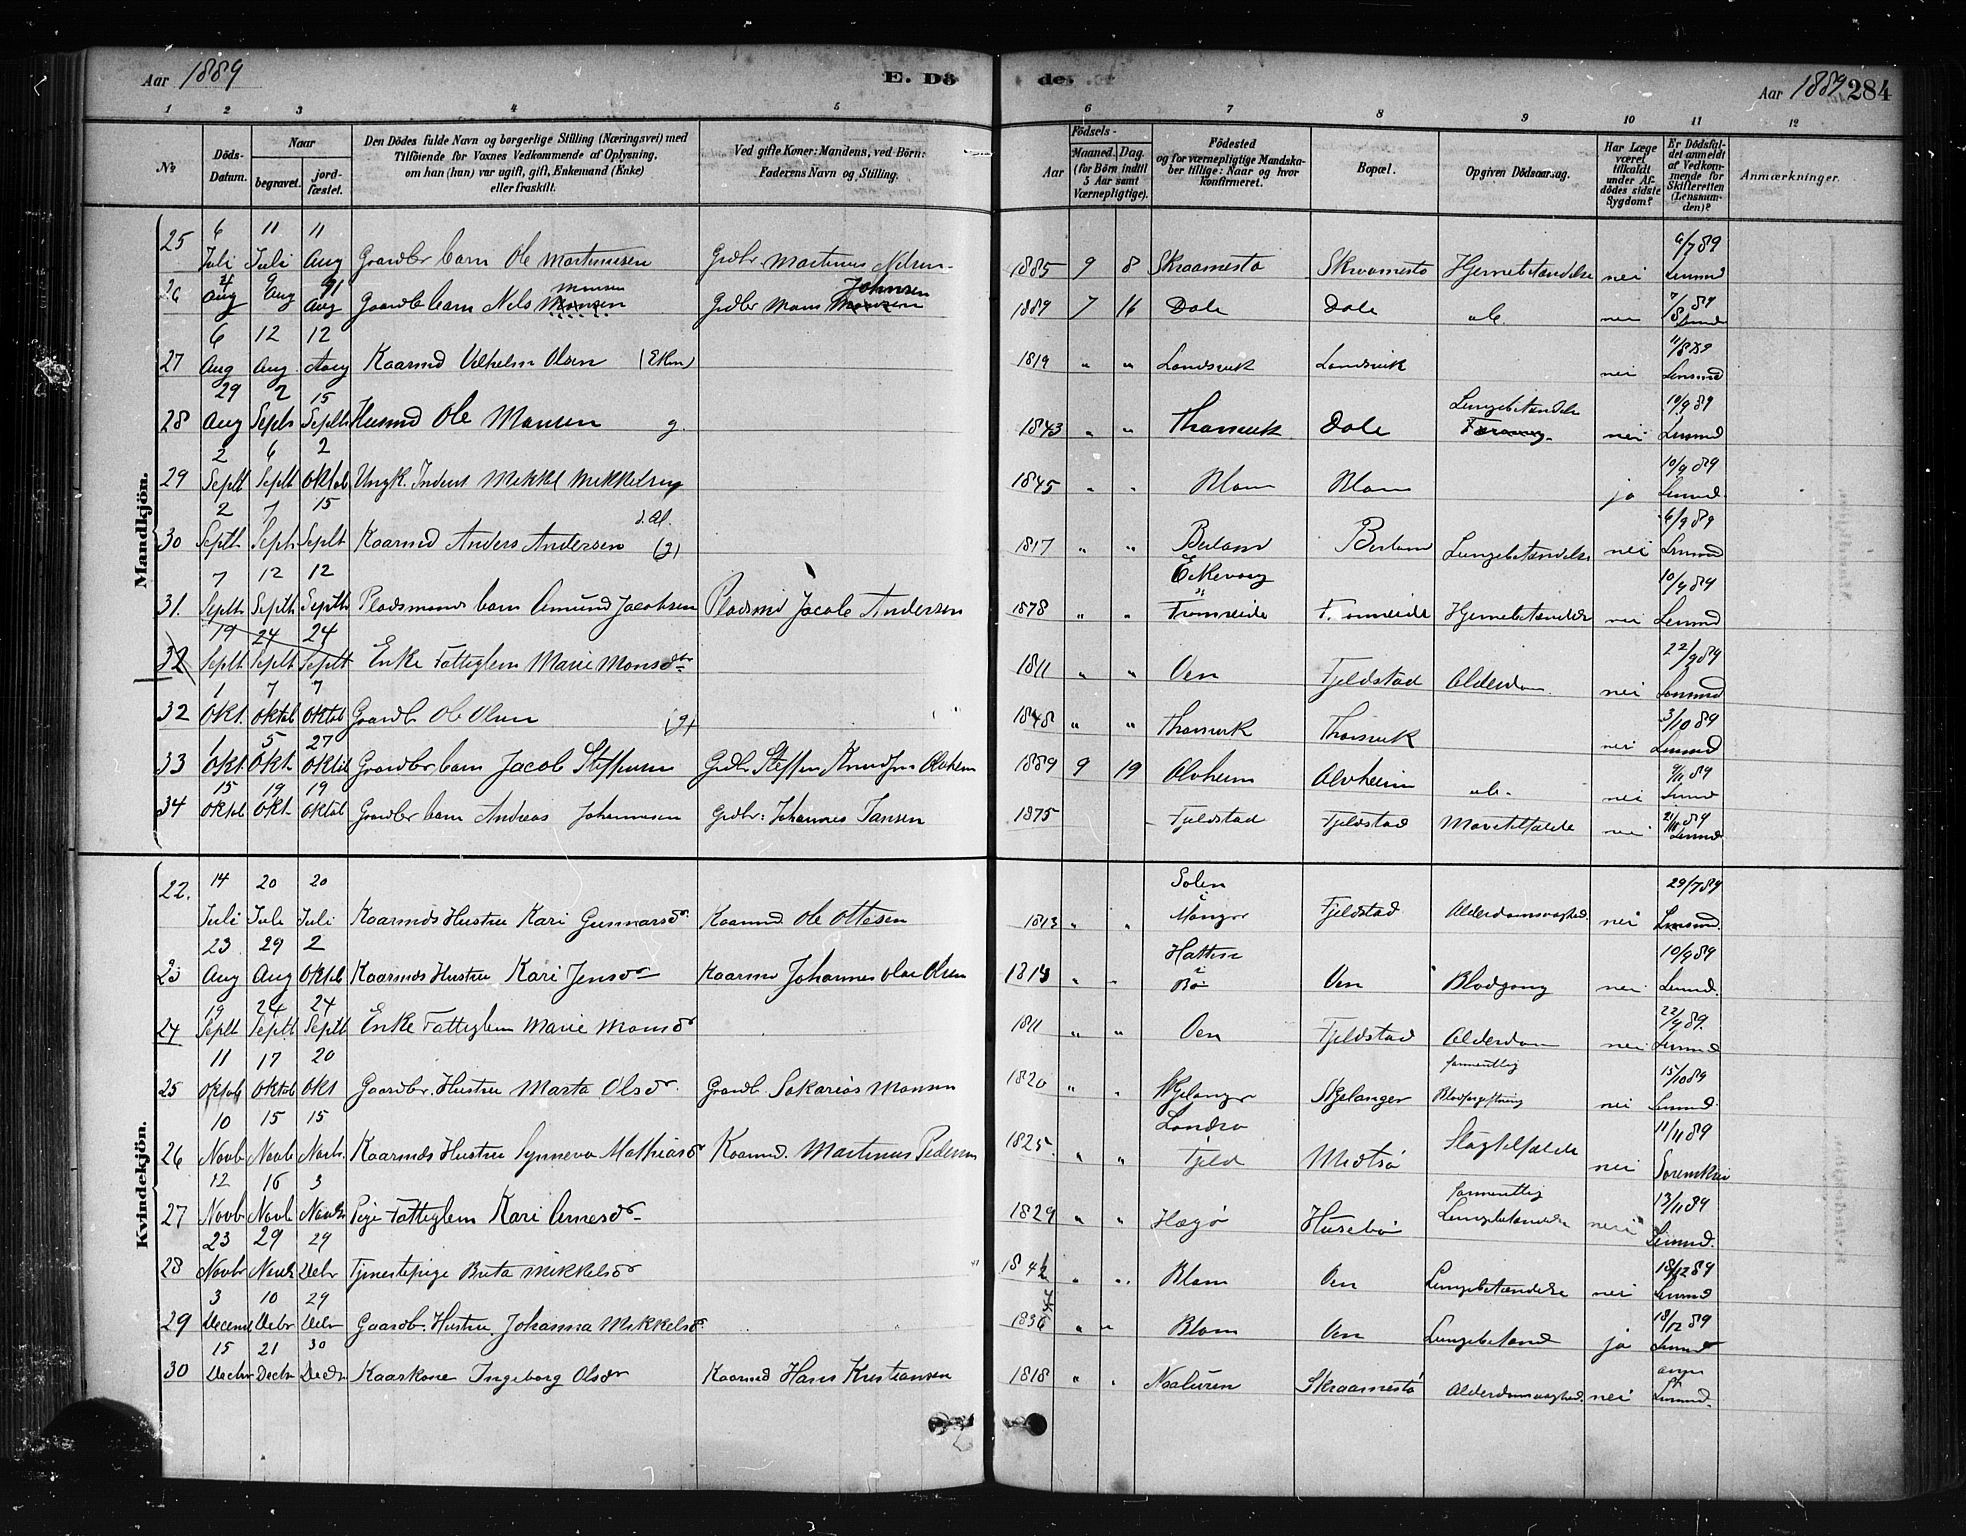 Aar 1889 E. Dö de. Aar 1889 284
1 2 3 4 5 6 7 8 9 10 11 12
No. Döds-Datum. Naar begravet. jordfæstet. Den Dödes fulde Navn og borgerlige Stilling (Næringsvei) med Tilföiende for Voxnes Vedkommende af Oplysning, om han (hun) var ugift, gift, Enkemand (Enke) eller fraskilt. Ved gifte Koner: Mandens, ved Börn: Faderens Navn og Stilling. Aar Födsels- Maaned. Dag. (for Börn indtil 5 Aar samt Værnepligtige). Födested og for værnepligtige Mandskaber tillige: Naar og hvor Konfirmeret. Bopæl. Opgiven Dödsaarsag. Har Læge været tilkaldt under Afdödes sidste Sygdom? Er Dödsfaldet anmeldt af Vedkommende for Skifteretten (Lensmanden)? Anmærkninger.
Mandkjön.
25 6 Juli 11 Juli 11 Aug Gaardbr barn Ole Martinusen Grdbr Martinus Nilsen 1885 9 8 Skraamestø Skraamestø Hjernebetændelse nei 6/7 89 Lensmd
26 4 Aug 9 Aug 11 Aug Gaardb barn Nils Monsen Grdbr Mons Johnsen 1889 7 16 Dale Dale ub. nei 7/8 89 Lensmd
27 6 Aug 12 Aug 12 Aug Kaarmd Vilhelm Olsen (Ekm) 1819 " " Landsvik Landsvik nei 11/8 89 Lensmd
28 29 Aug 2 Septb 15 Septb Husmd Ole Monsen g. 1843 " " Thorsvik Dale Lungebetændelse nei 10/9 89 Lensmd
29 2 Septb 6 Septb 2 Oktob Ungk. Inderst Mikkel Mikkelsen 1845 " " Blom Blom ja 10/9 89 Lensmd
30 2 Septb 7 Septb 15 Septb Kaarmd Anders Andersen (g) 1817 " " Berland Berland Lungebetændelse nei 6/9 89 Lensmd
31. 7 Septb 12 Septb 12 Septb Pladsmands barn Amund Jacobsen Pladsmd Jacob Andersen 1878 " " Eikevaag Fromreide Fromreide Hjernebetændelse nei 10/9 89 Lensmd
32 19 Septb 24 Septb 24 Septb Enke Fattiglem Marie Monsdtr 1811 " " Oen Fjeldstad Alderdom nei 22/9 89 Lensmd
32 1 Okt. 7 Oktob 7 Oktob Gaardb Ole Olsen (g) 1848 " " Thorsvik Thorsvik nei 3/10 89 Lensmd
33 1 Okt. 5 Okt. 27 Oktob Gaardbr barn Jacob Steffensen Grdbr Steffen Knudsen Alvheim 1889 9 19 Alvheim Alvheim ub. nei 89 Lensmd
34 15 Oktob 19 Okt. 19 Oktob Gaardbr barn Andreas Johannesen Grdbr: Johannes Jansen 1875 Fjeldstad Fjeldstad Mavetilfælde nei 89 Lensmd
Kvindekjön.
22. 14 Juli 20 Juli 20 Juli Kaarmds Hustru Kari Gunnarsdr Kaarmd. Ole Ottesen 1813 " " Solen i Manger Fjeldstad Alderdomssvaghed. nei 29/7 89 Lensmd.
23 23 Aug 29 Aug 2 Oktob Kaarmds Hustru Kari Jensdr Kaarmd Johannes Olai Olsen 1813 " " Hatten i Bø Oen Blodgang nei 10/9 89 Lensmd.
24 19 Septb 24 Septb 24 Septb Enke Fattiglem Marie Monsdr 1811 " " Oen Fjeldstad Alderdom nei 22/9 89. Lensmd
25 11 Oktob 17 Oktob 20 Okt Gaardbr. Hustru Marta Olsdr. Gaardb Sakarias Monsen 1820 " " Skjelanger Skjelanger formentlig Blodforgiftning nei 15/10 89 Lensmd.
26 10 Novb 15 Novb 15 Novb. Kaarmds Hustru Synneva Mathiasdr Kaarmd. Martinus Pedersen 1825. " " Landro Fjeld Midtsø Slagtilfælde nei 11/11 89 Sorenskriv
27 12 Novb 16 Novb 3 Novbr Pige Fattiglem Kari Arnesdr 1829 " " Hægø Husebø formentlig Lungebetændelse nei 13/11 89 Lensmd.
28 23 Novbr 29 Novbr 29 Debr Tjenestepige Brita Mikkelsdr 1842 " " Blom Oen Lungebetændelse nei 18/12 89 Lensmd
29 3 Decemb 10 Debr 29 Debr Gaardb. Hustru Johanna Mikkelsdr. 1836 " " Blom Oen Lungebetænd ja 18/12 89 Lensmd
30 15 Decbr 21 Decbr 30 Decbr Kaarkone Ingeborg Olsdr Kaarmd Hans Kristiansen 1818 " " Naaluren Skraamestø Alderdomssvaghed. nei Lensmd.